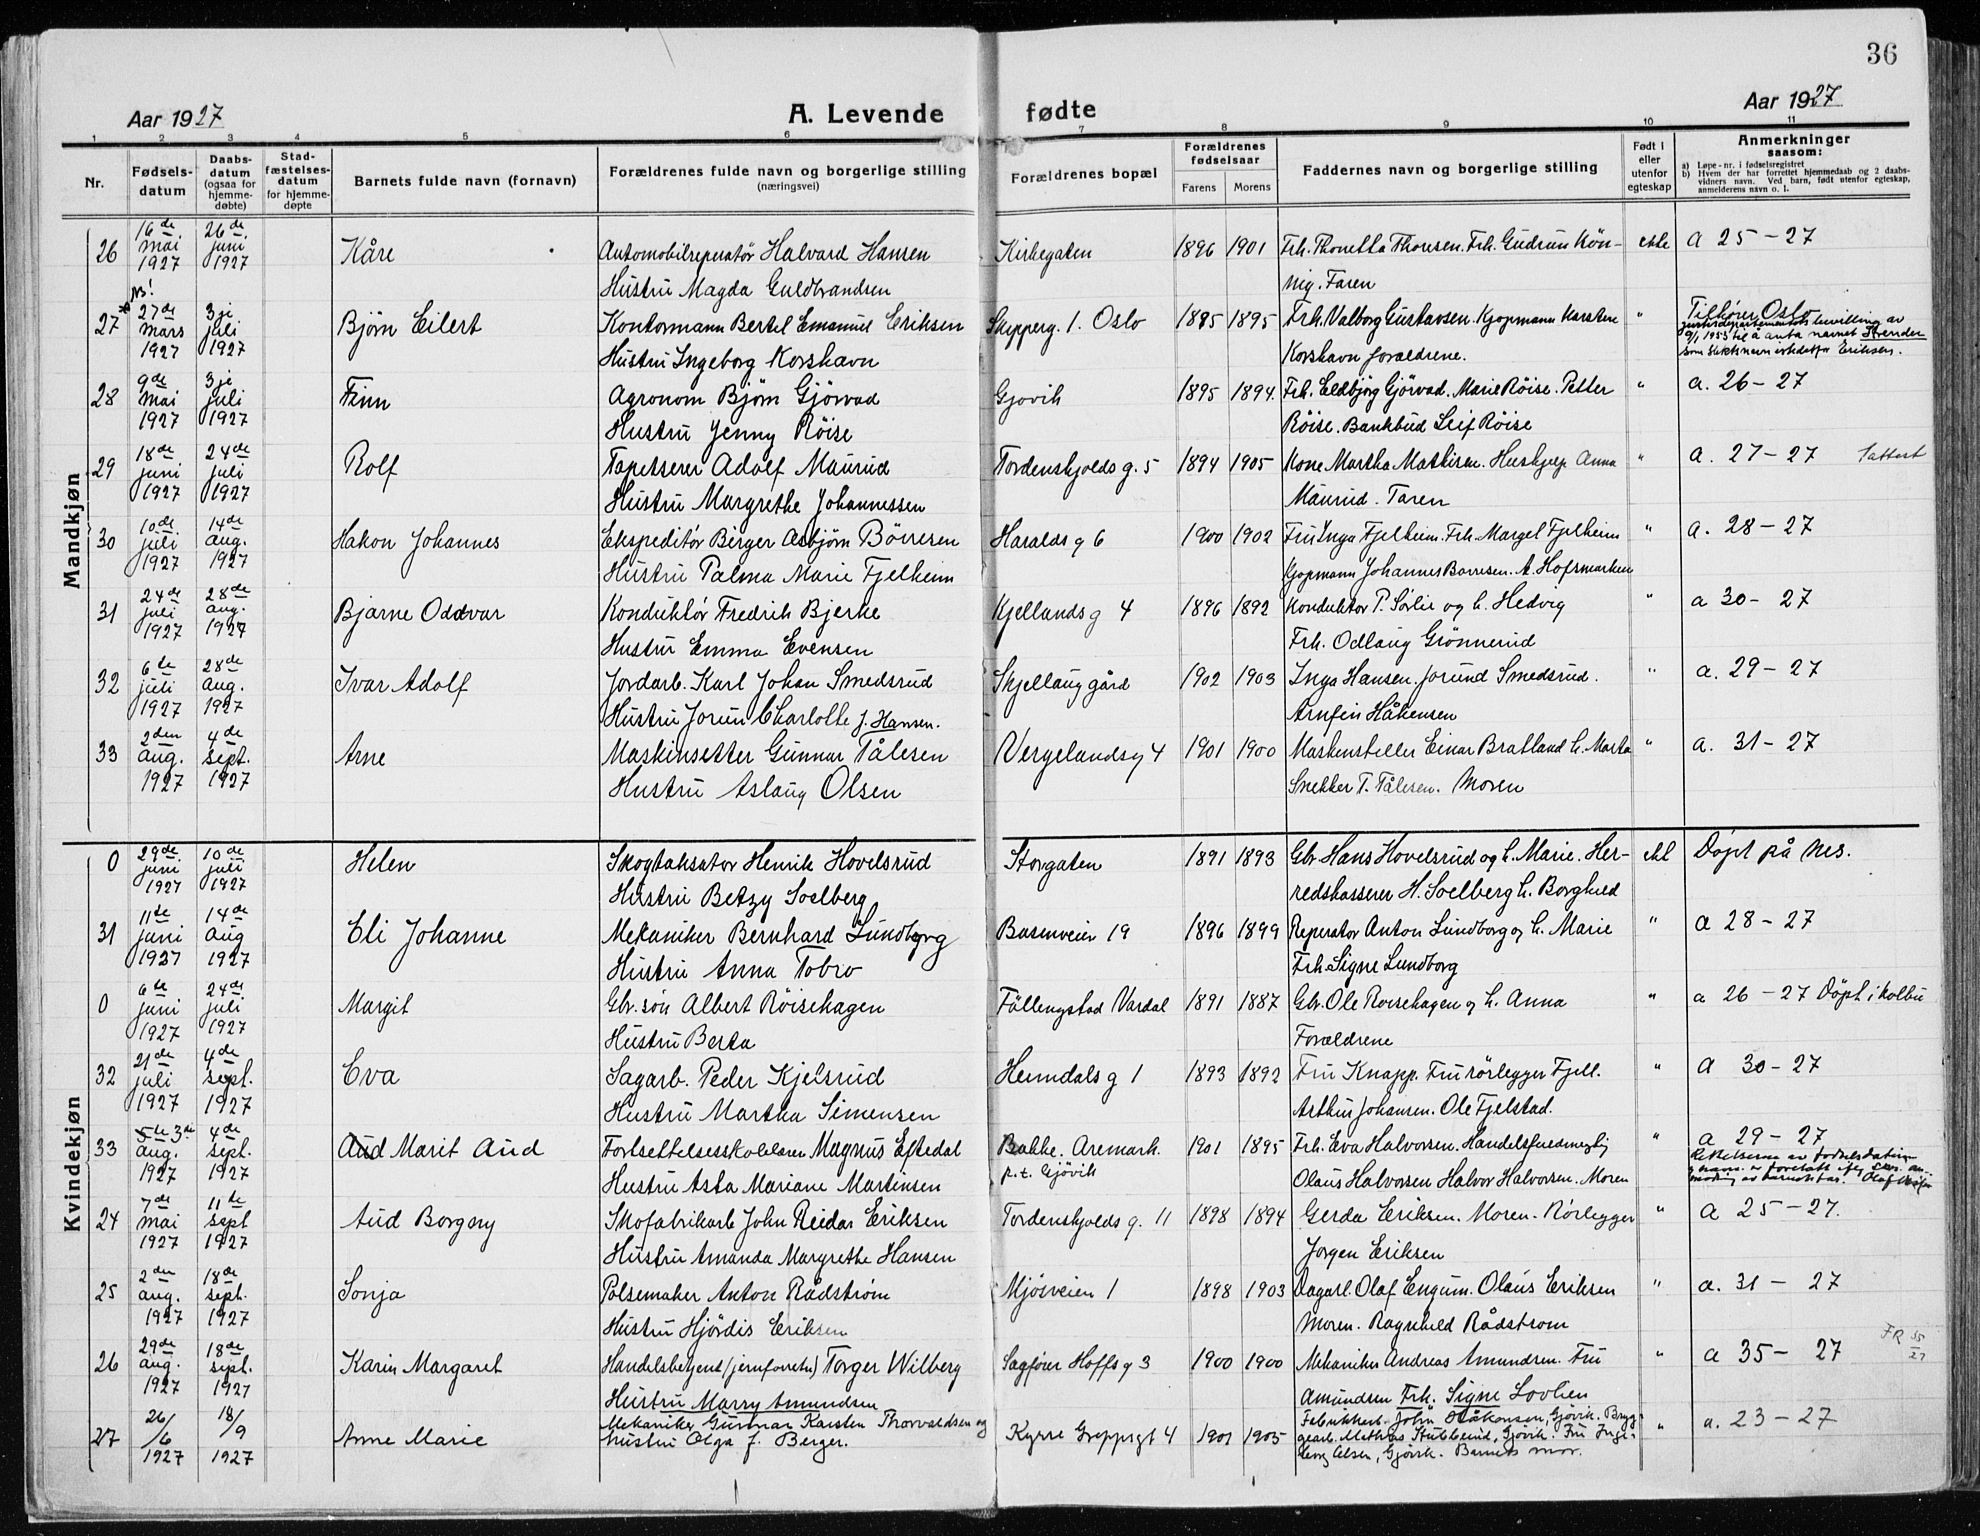 36
Aar 1927 A. Levende fødte Aar 1927
1 2 3 4 5 6 7 8 9 10 11
Nr. Fødsels-datum Daabs-datum (ogsaa for hjemme-døbte) Stad-fæstelses-datum for hjemme-døpte Barnets fulde navn (fornavn) Forældrenes fulde navn og borgerlige stilling (næringsvei) Forældrenes bopæl Forældrenes fødselsaar Farens Morens Faddernes navn og borgerlige stilling Født i eller utenfor egteskap Anmerkninger saasom:
a) Løpe-nr. i fødselsregistret
b) Hvem der har forrettet hjemmedaab og 2 daabs-vidners navn. Ved barn, født utenfor egteskap, anmelderens navn o. l.
Mandkjøn
26 16de mai 1927 26de juni 1927 Kåre Automobilreperatør Halvard Hansen Kirkegaten 1896 1901 Frk. Thonetta Thoresen. Frk. Gudrun Kön- ekte a 25-27
Hustru Magda Guldbrandsen nig. Faren
NB!
27 27de mars 1927 3je juli 1927 Bjørn Eilert Kontormann Bertel Emanuel Eriksen Skipperg. 1. Oslo 1895 1895 Frk. Valborg Gustavsen. Kjøpmann Karsten " Tilhører Oslo
Hustru Ingeborg Korshavn Korshavn foreldrene. justisdepartementets bevilling av
9/1 1953 til å anta navnet Strender
som slektsnavn istedetfor Eriksen.
28 9de mai 1927 3je juli 1927 Finn Agronom Bjørn Gjörvad Gjøvik 1895 1894. Frk. Eldbjörg Gjörvad. Marie Röise. Petter " a. 26-27
Hustru Jenny Röise Röise. Bankbud Leif Röise
29 18de juni 1927 24de juli 1927 Rolf Tapetserer Adolf Maurud Tordenskjolds g. 5 1894 1905 Kone Martha Mathisen. Hushjelp Anna " a. 27-27 1 attest
Hustru Margrethe Johannessen Maurud. Faren
30 10de juli 1927 14de aug. 1927 Hakon Johannes Ekspeditör Birger Asbjørn Börresen Haralds g 6 1900 1902 Fru Inga Fjelheim. Frk. Margel Fjelheim " a. 28-27
Hustru Palma Marie Fjelheim Kjøpmann Johannes Borresen. A. Hofsmarken
31 24de juli 1927 28de aug. 1927 Bjarne Oddvar Konduktør Fredrik Bjerke Kjellands g 4 1896 1892 Konduktør P. Sörlie og h. Hedvig " a 30-27
Hustru Emma Evensen Frk. Odlaug Grönnerud
32 6te juli 1927 28de aug. 1927 Ivar Adolf Jordarb. Karl Johan Smedsrud Skjellaug gård 1902 1903 Inga Hansen. Jorund Smedsrud. " a. 29-27
Hustru Jorun Charlotte J. Hansen. Arnfin Håkensen
33 2den aug. 1927 4de sept. 1927 Arne Maskinsetter Gunnar Tålesen Vergelandsg 4 1901 1900 Maskinstiller Einar Bratland h. Marta " a. 31-27
Hustru Aslaug Olsen Snekker T. Tålesen. Moren
Kvindekjøn
0 29de juni 1927 10de juli 1927 Helen Skogtaksator Henrik Hovelsrud Storgaten 1891 1893 Gbr. Hans Hovelsrud og h. Marie. Her- ekt Døpt på Nes.
Hustru Betzy Soelberg redskasserer H. Soelberg h. Borghild
31 11te juni 1927 14de aug 1927 Eli Johanne Mekaniker Bernhard Lundborg Basenveien 19 1896 1899 Reperatør Anton Lundborg og h. Marie " a 28-27
Hustru Anna Tobro Frk. Signe Lundborg
0 6te juni 1927 24de juli 1927 Margit Gbr. søn Albert Röisehagen Föllengstad Vardal 1891 1887 Gbr. Ole Roisehagen og h. Anna " a 26-27 Döpt i Kolbu
Hustru Berta Forældrene
32 21de juli 1927 4de sept. 1927 Eva Sagarb. Peder Kjelsrud Heimdals g 1 1893 1892 Fru Knapp. Fru rørlegger Fjell. " a 30-27
Hustru Martha Simensen Arthur Johansen. Ole Fjelstad.
33 5te 3de aug. 1927 4de sept. 1927 Aud Marit Aud Fortsettelsesskolelærer Magnus Eftedal Bakke. Aremark. 1901 1895 Frk. Eva Halvorsen. Handelsfuldmegtig " a 29-27
Hustru Asta Mariane Martinsen p.t. Gjövik Olaus Halvorsen Halvor Halvorsen. Moren Rettelserne av fødselsdatum
og navn er foretatt efter
24 7de mai 1927 11te sept 1927 Aud Borgny Skofabrikarb John Reidar Eriksen Tordenskjolds g. 11 1898 1894 Gerda Eriksen. Moren. Rørlegger " a 25-27.
Hustru Amanda Margrethe Hansen Jørgen Eriksen
25 2den aug. 1927 18de sept. 1927 Sonja Pølsemaker Anton Rådstrøm Mjøsveien 1 1898 1903 Dagarb. Olaf Engum. Olaus Eriksen " a. 31-27
Hustru Hjördis Eriksen Moren. Ragnhild Rådstrøm
26 29de aug. 1927 18de sept. 1927 Karin Margaret Handelsbetjent (jernforretn.) Torger Wilberg Sagfører Hoffs g 3 1900 1900 Mekaniker Andreas Amundsen. Fru " a 35-27 FR 35/27
Hustru Marry Amundsen Amundsen Frk. Signe Lovlien
27 26/6 1927 18/9 1927 Anne Marie Mekaniker Gunnar Karsten Thorvaldsen og Kyrre Greppsgt 4 1901 1905 Fabrikkarb. John Håkonsen, Gjøvik. Brygg- " a. 23-27
hustru Olga J. Berger. gearb. Mathias Stubberud, Gjövik. Fru Inge-
borg Olsen, Gjøvik. Barnets mor.